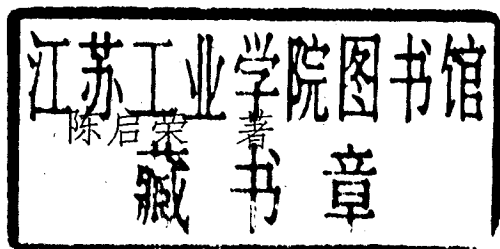 江苏工业学院图书馆
陈启荣 著
藏书章